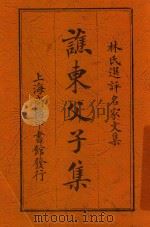 林氏選評名家文集
譙東父子集
上海
書館發行